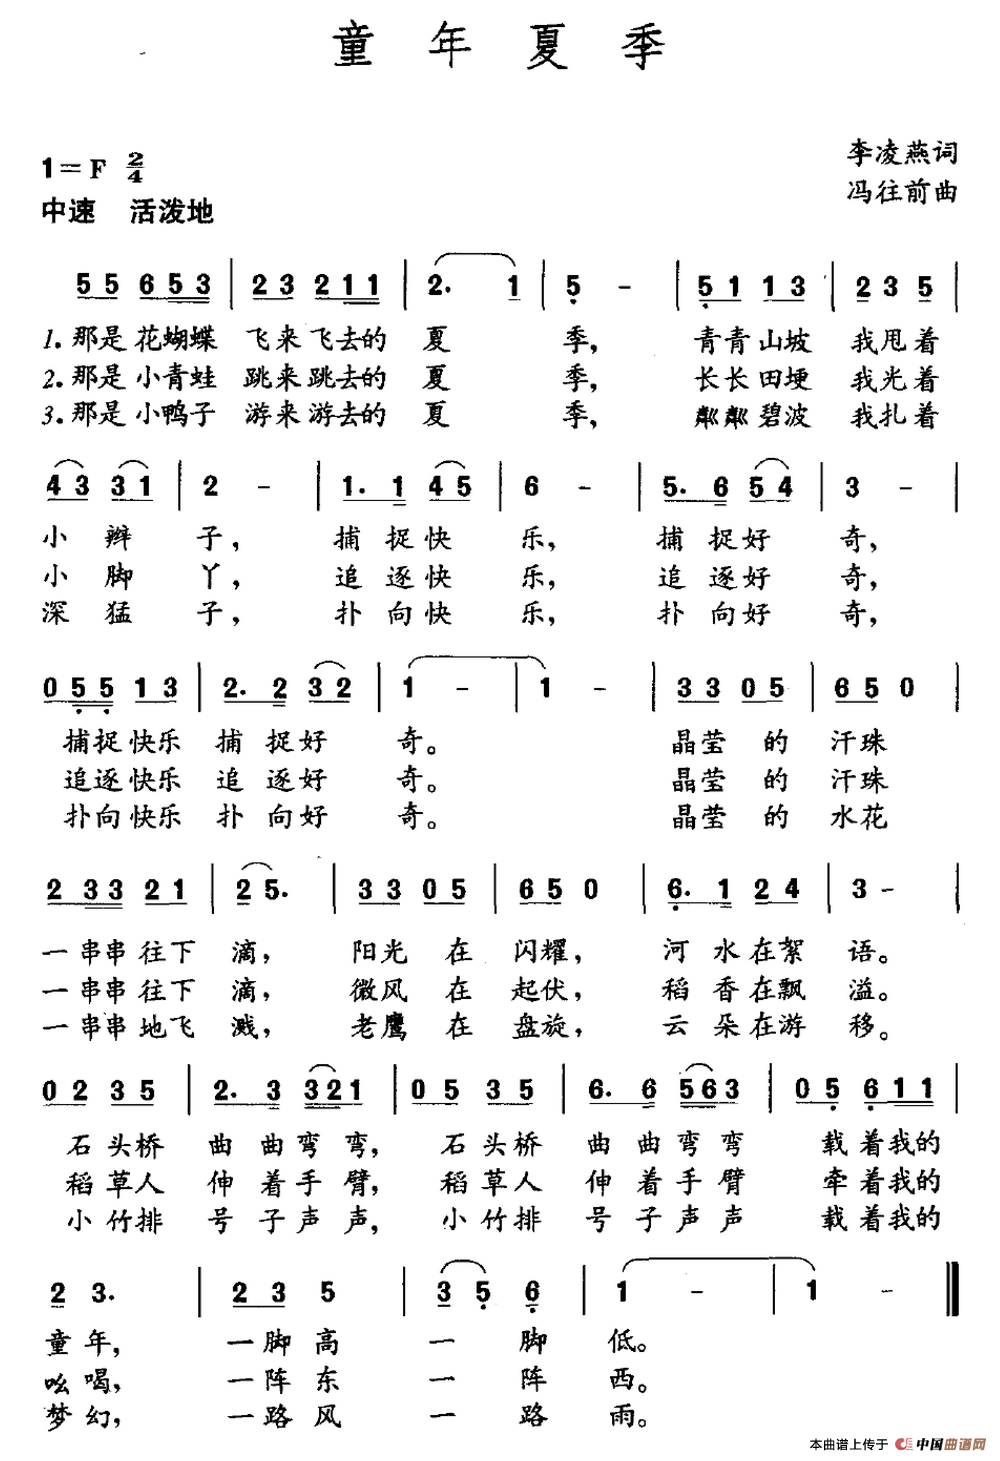 童年夏季
1=F 2/4
李凌燕词
中速 活泼地
冯往前曲
5 5 6 5 3 | 2 3 2 1 1 | 2. 1 | 5 - | 5 1 1 3 | 2 3 5 |
1. 那是花蝴蝶 飞来飞去的 夏 季, 青青山坡 我甩着
2. 那是小青蛙 跳来跳去的 夏 季, 长长田埂 我光着
3. 那是小鸭子 游来游去的 夏 季, 粼粼碧波 我扎着
4 3 3 1 | 2 - | 1. 1 4 5 | 6 - | 5. 6 5 4 | 3 - |
小 辫 子, 捕 捉 快 乐, 捕 捉 好 奇,
小 脚 丫, 追 逐 快 乐, 追 逐 好 奇,
深 猛 子, 扑 向 快 乐, 扑 向 好 奇,
0 5 5 1 3 | 2. 2 3 2 | 1 - | 1 - | 3 3 0 5 | 6 5 0 |
捕捉快乐 捕 捉 好 奇。 晶莹 的 汗珠
追逐快乐 追 逐 好 奇。 晶莹 的 汗珠
扑向快乐 扑 向 好 奇。 晶莹 的 水花
2 3 3 2 1 | 2 5. | 3 3 0 5 | 6 5 0 | 6. 1 2 4 | 3 - |
一串串往下 滴, 阳光 在 闪耀, 河 水在絮 语。
一串串往下 滴, 微风 在 起伏, 稻 香在飘 溢。
一串串地飞 溅, 老鹰 在 盘旋, 云 朵在游 移。
0 2 3 5 | 2. 3 3 2 1 | 0 5 3 5 | 6. 6 5 6 3 | 0 5 6 1 1 |
石头桥 曲 曲弯 弯, 石头桥 曲 曲弯 弯 载着我的
稻草人 伸 着手 臂, 稻草人 伸 着手 臂 牵着我的
小竹排 号 子声 声, 小竹排 号 子声 声 载着我的
2 3. | 2 3 5 | 3 5 6 | 1 - | 1 - ‖
童 年, 一脚高 一 脚 低。
吆 喝, 一阵东 一 阵 西。
梦 幻, 一路风 一 路 雨。
本曲谱上传于 中国曲谱网